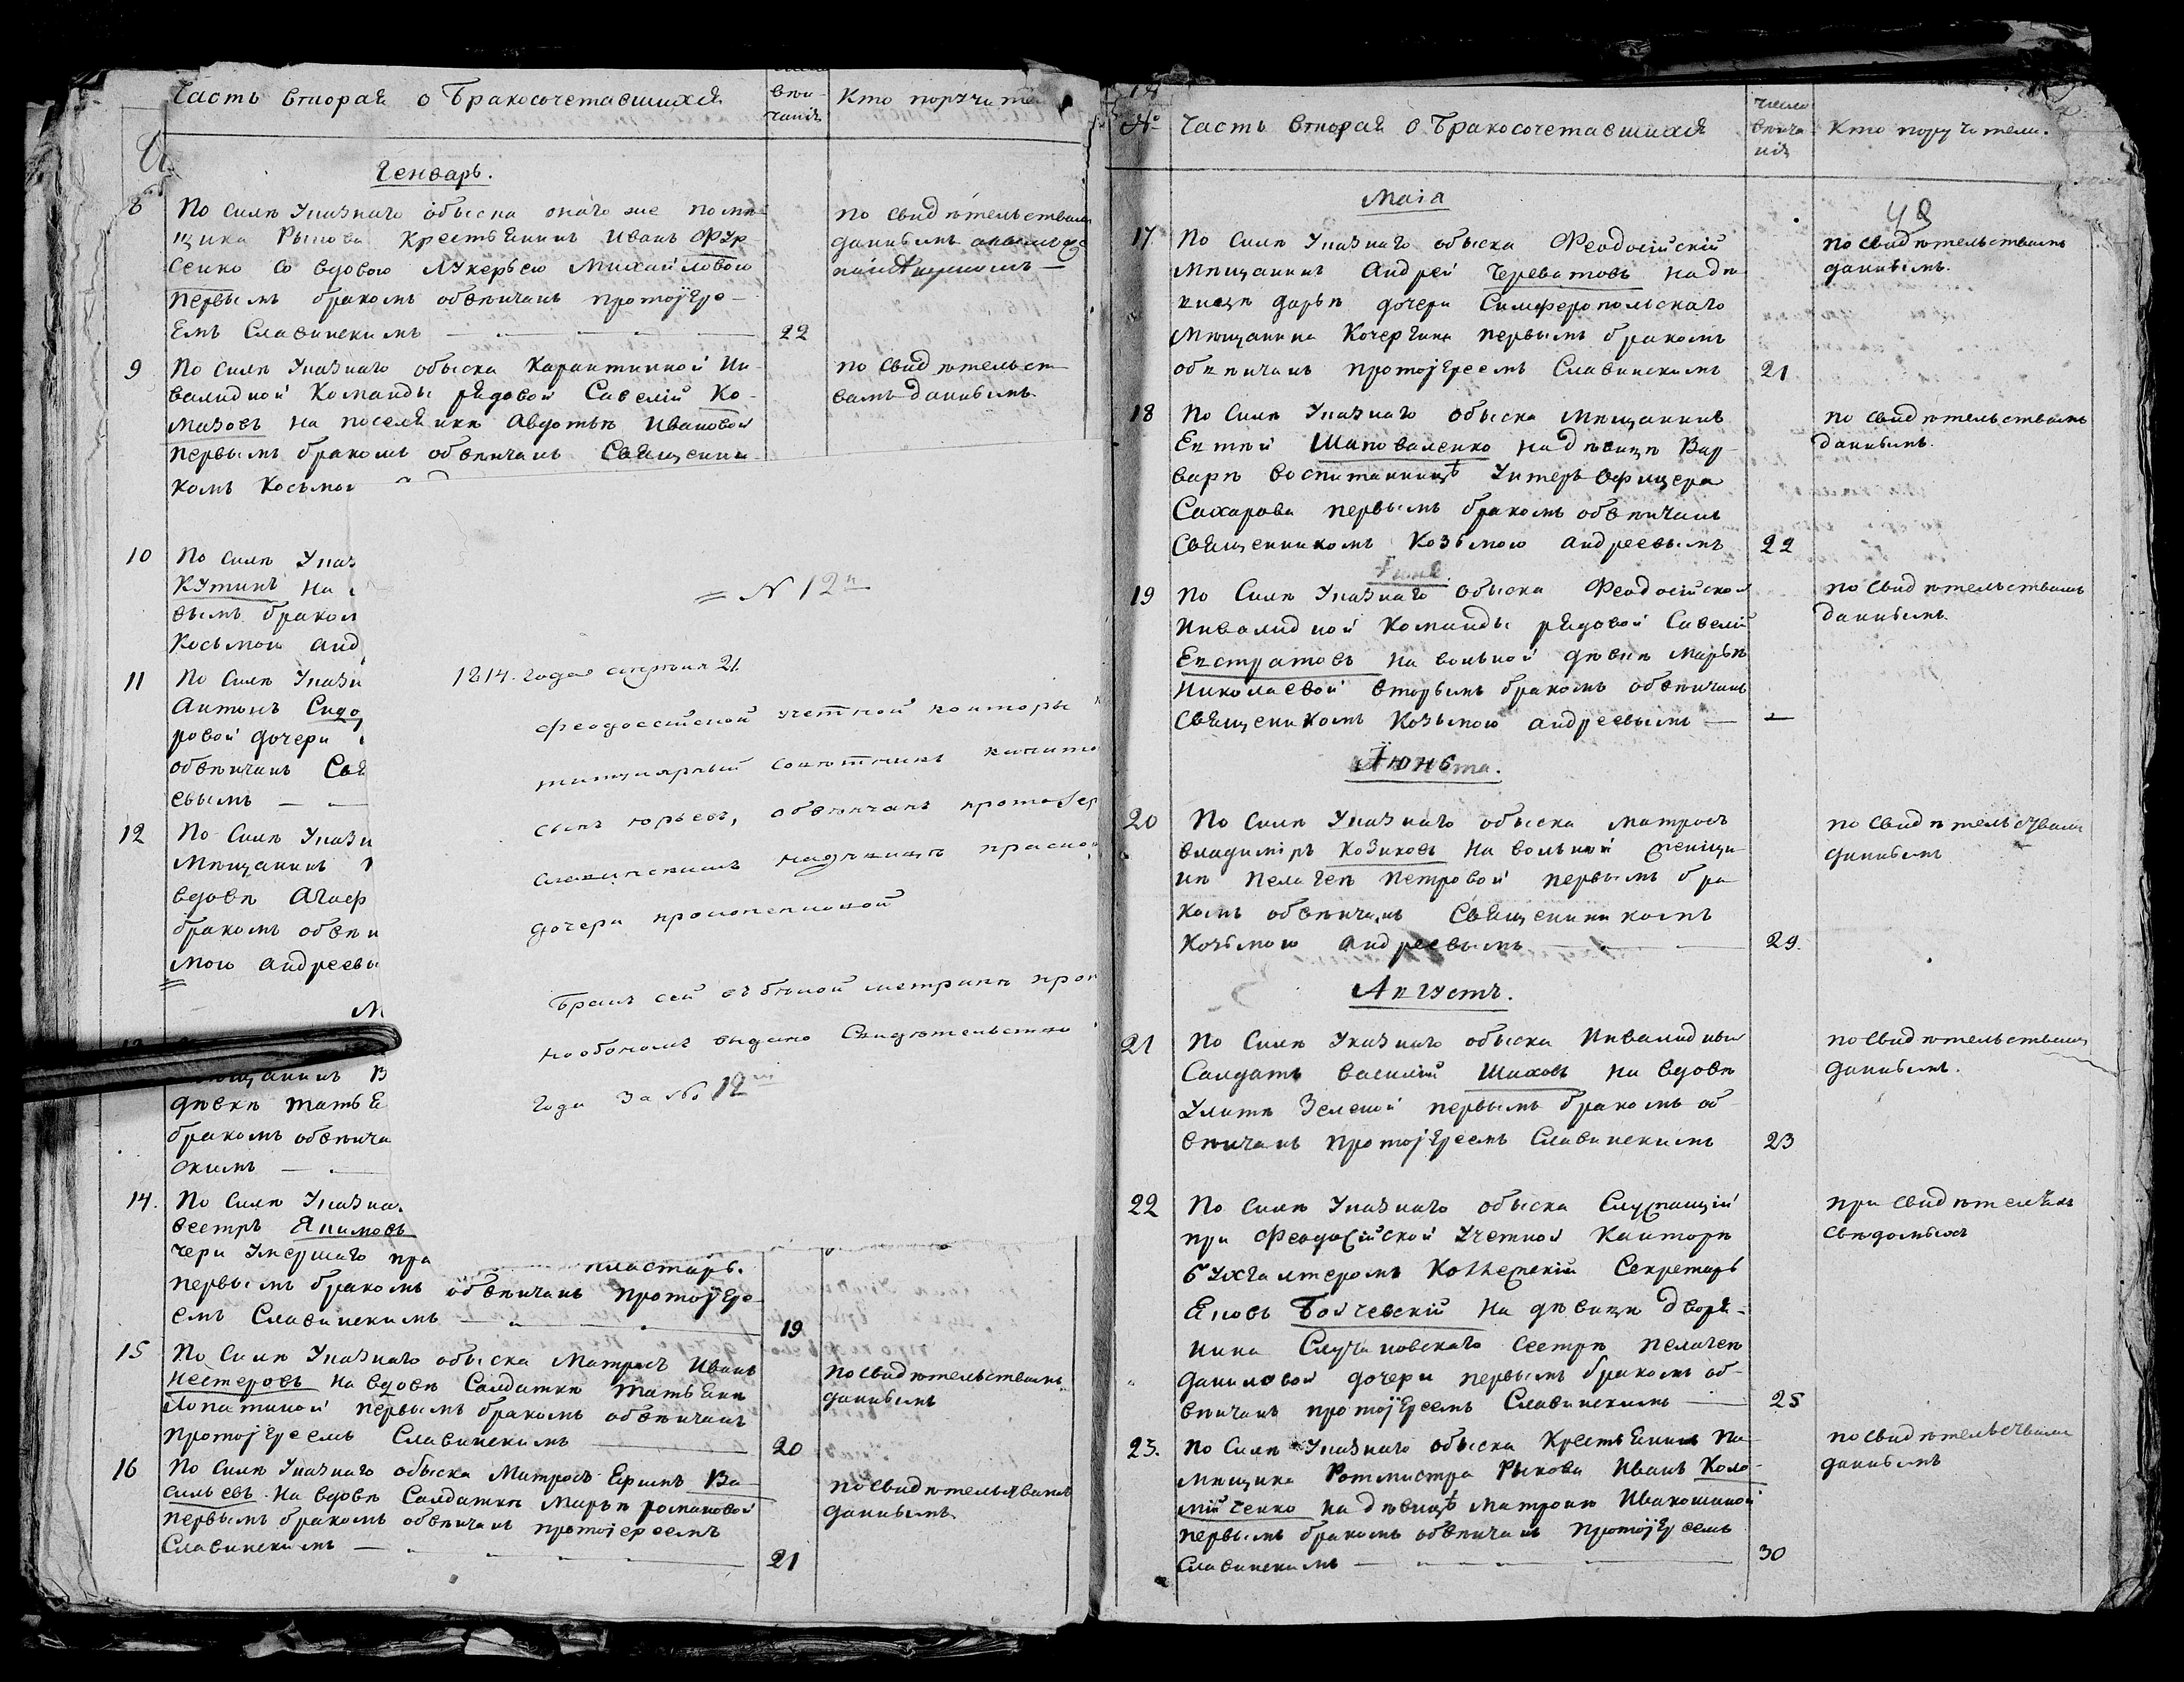 Часть вторая о Бракосочетавшихся
вѣн-
чанія
Кто поручители
Генварь.
8
По силѣ Указнаго обыска онаго же помѣ-
щика Рыкова Крестьянинъ Иванъ Фур
сенко со вдовою Лукерьею Михайловою
первымъ бракомъ обвѣнчанъ протоіере-
емъ Славинскимъ
22
по свидѣтельствамъ
даннымъ
9
По силѣ Указнаго обыска Карантинной Ин-
валидной Команды рядовой Савелій Ко-
мазовъ на поселянкѣ Авдотьѣ Ивановой
первымъ бракомъ обвѣнчанъ Священни-
комъ Космою
по свидѣтельст
вамъ даннымъ
10
По силѣ Указ
Кутинъ на
вымъ браком
Косьмою Анд
11
По силѣ Указн
Антонъ Сидо
ровой дочери
обвѣнчанъ Свя
евымъ
12
По силѣ Указн
Мѣщанинъ
вдовѣ Агаф
бракомъ обвѣн
мою Андреевы
М
мѣщанинъ В
дѣвкѣ Татья
бракомъ обвѣнча
скимъ
14.
По силѣ Указна
сестръ Якимовъ
чери умершаго пра
первымъ бракомъ обвѣнчанъ протоіере-
емъ Славинскимъ
19
15
По силѣ Указнаго обыска Матросъ Иванъ
Нестеровъ на вдовѣ Солдаткѣ Татьянѣ
Лопатиной первымъ бракомъ обвѣнчанъ
Протоіереемъ Славинскимъ
20
по свидѣтельствамъ
даннымъ
16
По силѣ Указнаго обыска Матросъ Ермилъ Ва
сильевъ на вдовѣ Солдаткѣ Марьѣ Романовой
первымъ бракомъ обвѣнчанъ протоіереемъ
Славинскимъ
21
по свидѣтельствамъ
даннымъ
N 12й
1814. года апрѣля 21
Феодосійской учетной конторы
титулярный совѣтникъ
сынъ Юрьевъ, обвѣнчанъ протоіер
Славинскимъ на дѣвицѣ
дочери
Бракъ сей въ бѣлой метрикѣ
но обономъ выдано Свидѣтельство
года за № 12
№
Часть вторая о Бракосочетавшихся
число
вѣнча
нія
Кто поручители.
Маія
17
По силѣ Указнаго обыска Феодосійскій
мѣщанинъ Андрей Череватовъ на дѣ
вицѣ Дарьѣ дочери Симферопольскаго
мѣщанина Кочергина первымъ бракомъ
обвѣнчанъ протоіереемъ Славинскимъ
21
по свидѣтельствамъ
даннымъ.
18
По силѣ Указнаго обыска мѣщанинъ
Шаповаленко на дѣвицѣ Вар
варѣ воспитанницѣ Унтеръ Офицера
Сахарова первымъ бракомъ обвѣнчанъ
Священникомъ Козьмою Андреевымъ
22
по свидѣтельствамъ
даннымъ.
19
По силѣ Указнаго обыска Феодосійской
Инвалидной Команды рядовой Савелій
Евстратовъ на вольной дѣвкѣ Марьѣ
Николаевой вторымъ бракомъ обвѣнчанъ
Священникомъ Козьмою Андреевымъ
по свидѣтельствамъ
даннымъ.
20
По силѣ Указнаго обыска матросъ
Владиміръ Козиковъ на вольной женщи
нѣ Пелагеѣ Петровой первымъ бра
комъ обвѣнчанъ Священникомъ
Козьмою Андреевымъ
29.
по свидѣтельствамъ
даннымъ
Августъ.
21
По силѣ Указнаго обыска Инвалидный
Солдатъ Василій Шаховъ на вдовѣ
Улитѣ Зеленой первымъ бракомъ об
вѣнчанъ протоіереемъ Славинскимъ
23
по свидѣтельствамъ
даннымъ.
22
По силѣ Указнаго обыска Служащій
при Феодосійской Учетной Канторѣ
бухгалтеромъ Коллежскій Секретарь
Яковъ на дѣвицѣ дворя-
нина сестрѣ Пелагеѣ
Даниловой дочери первымъ бракомъ об-
вѣнчанъ протоіереемъ Славинскимъ
25
при свидѣтеляхъ
23.
по силѣ Указнаго обыска Крестьянинъ По
мѣщика Ротмистра Рыкова Иванъ Коло-
мійченко на дѣвицѣ Матронѣ Ивакошиной
первымъ бракомъ обвѣнчанъ Протоіереемъ
Славинскимъ
30
по свидѣтельствамъ
даннымъ